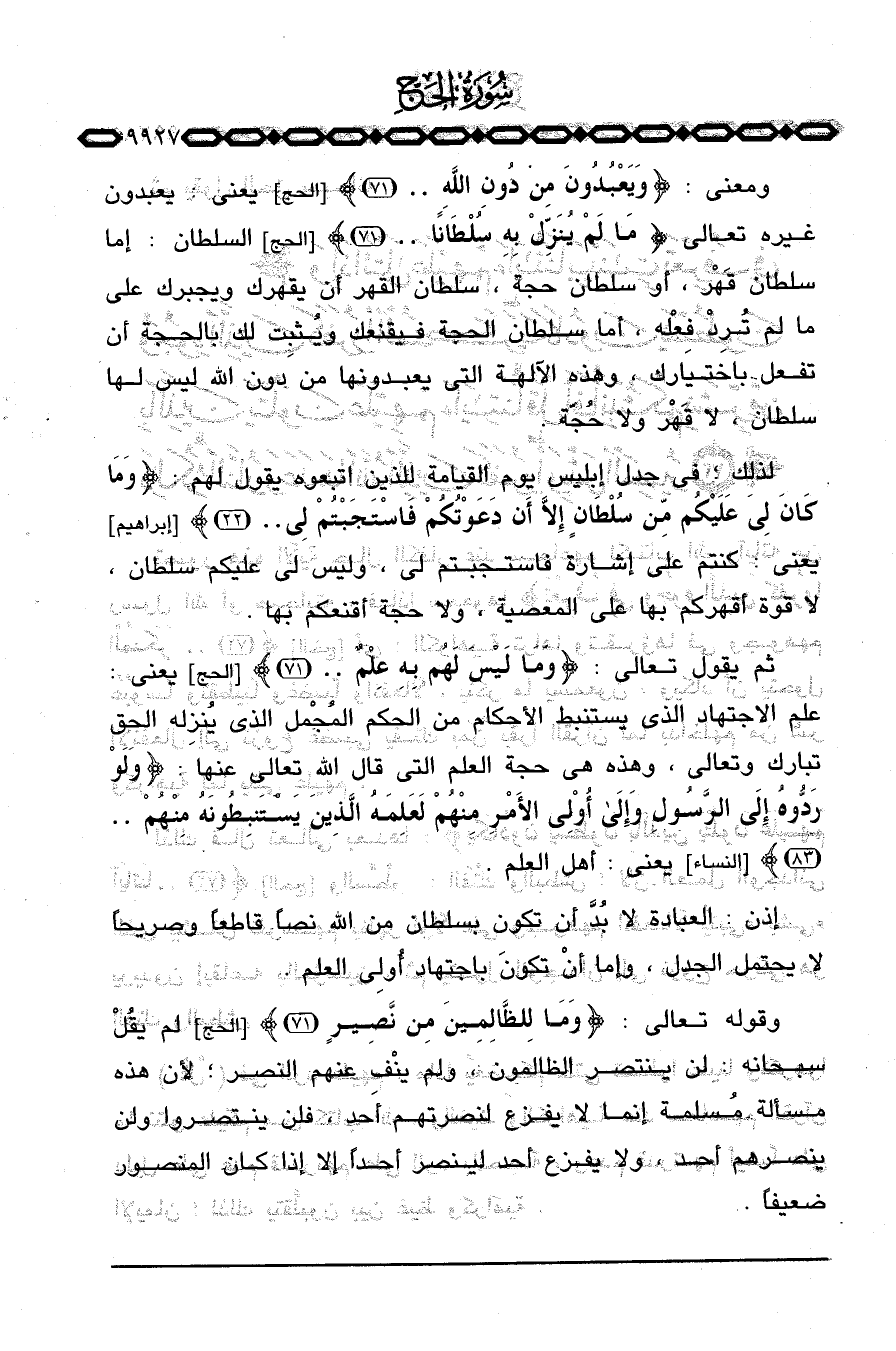 سُورَةُ الحَجّ
٩٩٢٧
ومعنى : ﴿ وَيَعْبُدُونَ مِن دُونِ اللَّهِ .. (٧١) ﴾ [الحج] يعنى : يعبدون
غيره تعالى ﴿ مَا لَمْ يُنَزِّلْ بِهِ سُلْطَانًا .. (٧١) ﴾ [الحج] السلطان : إما
سلطان قَهْر ، أو سلطان حجة ، سلطان القهر أن يقهرك ويجبرك على
ما لم تُرِدْ فِعْله ، أما سلطان الحجة فيقنعك ويُثبت لك بالحجة أن
تفعل باختيارك ، وهذه الآلهة التى يعبدونها من دون الله ليس لها
سلطان ، لا قَهْر ولا حُجَّة .
لذلك ؛ فى جدل إبليس يوم القيامة للذين اتبعوه يقول لهم : ﴿ وَمَا
كَانَ لِىَ عَلَيْكُم مِّن سُلْطَانٍ إِلاَّ أَن دَعَوْتُكُمْ فَاسْتَجَبْتُمْ لِى.. (٢٢) ﴾ [إبراهيم]
يعنى : كنتم على إشارة فاستجبتم لى ، وليس لى عليكم سلطان ،
لا قوة أقهركم بها على المعصية ، ولا حجة أقنعكم بها .
ثم يقول تعالى : ﴿ وما ليس لهم به عِلْمٌ .. (٧١) ﴾ [الحج] يعنى :
علم الاجتهاد الذى يستنبط الأحكام من الحكم المُجْمل الذى يُنزله الحق
تبارك وتعالى ، وهذه هى حجة العلم التى قال الله تعالى عنها : ﴿ وَلَوْ
رَدُّوهُ إِلَى الرَّسُولِ وَإِلَىٰ أُوْلِى الأَمْرِ مِنْهُمْ لَعَلِمَهُ الَّذِينَ يَسْتَنبِطُونَهُ مِنْهُمْ ..
(٨٣) ﴾ [النساء] يعنى : أهل العلم .
إذن : العبادة لا بُدَّ أن تكون بسلطان من الله نصاً قاطعاً وصريحاً
لا يحتمل الجدل ، وإما أنْ تكونَ باجتهاد أُولِى العلم .
وقوله تعالى : ﴿ وَمَا لِلظَّالِمِينَ مِن نَّصِيرٍ (٧١) ﴾ [الحج] لم يقُلْ
سبحانه : لن ينتصر الظالمون ، ولم ينْفِ عنهم النصر ؛ لأن هذه
مسألة مُسلمة إنما لا يفزع لنصرتهم أحد ، فلن ينتصروا ولن
ينصرهم أحد ، ولا يفزع أحد لينصر أحداً إلا إذا كان المنصور
ضعيفاً .